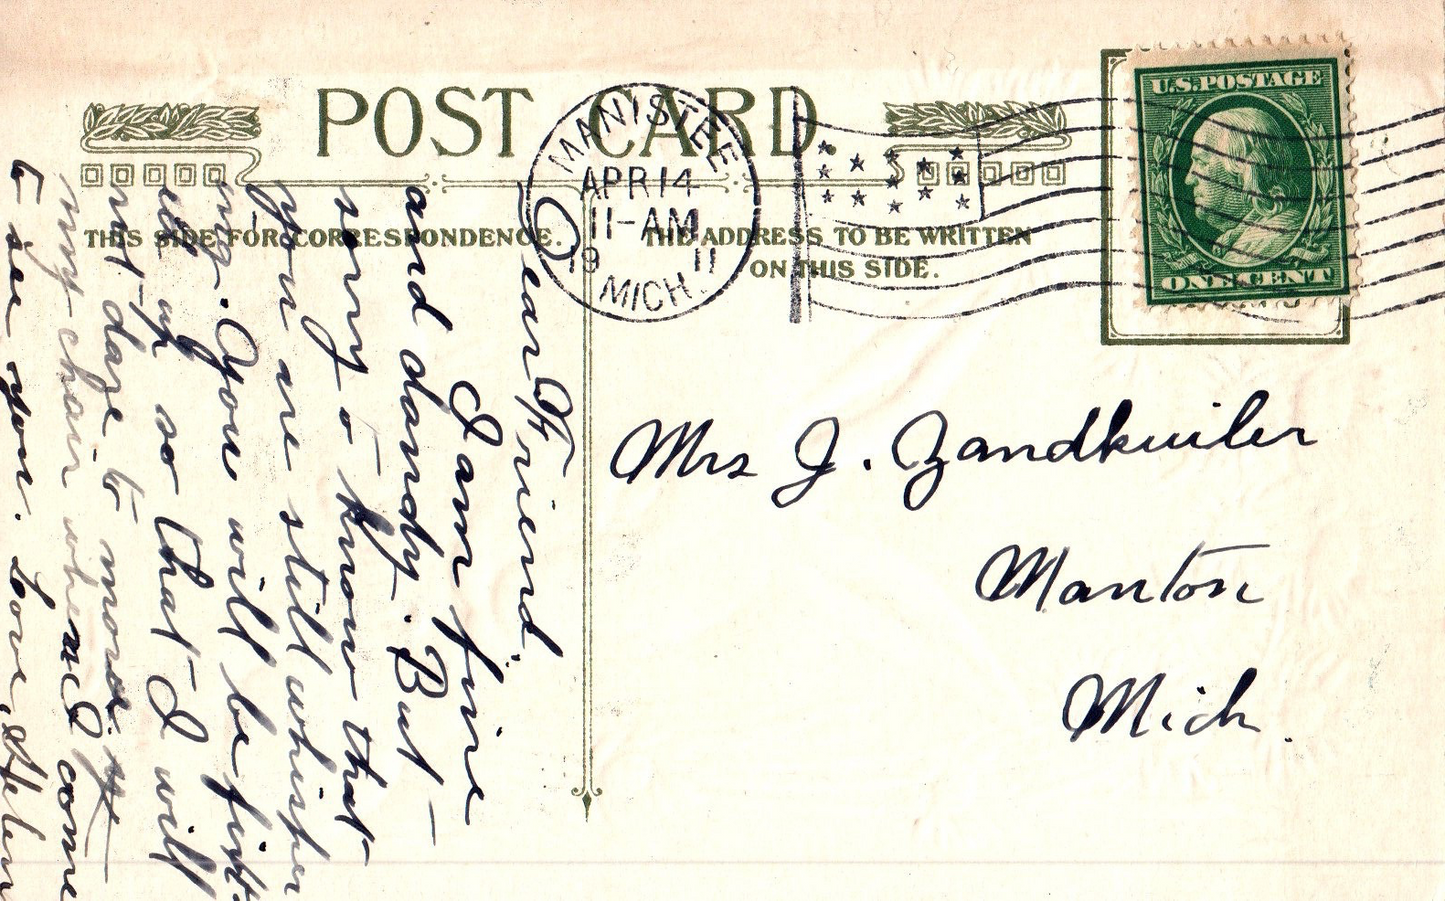 POST CARD.
THIS SIDE FOR CORRESPONDENCE.
THE ADDRESS TO BE WRITTEN
ON THIS SIDE.
MANISTEE
APR 14
11-AM
19 11
MICH.
U.S. POSTAGE
ONE CENT
Mrs J. Zandkuiler
Manton
Mich.
Dear Friend.
I am fine
and dandy. But
sorry to know that
you are still whisper
ing. You will be
up so that I will
not dare to move
my chair when I come
to see you. Love, Helen